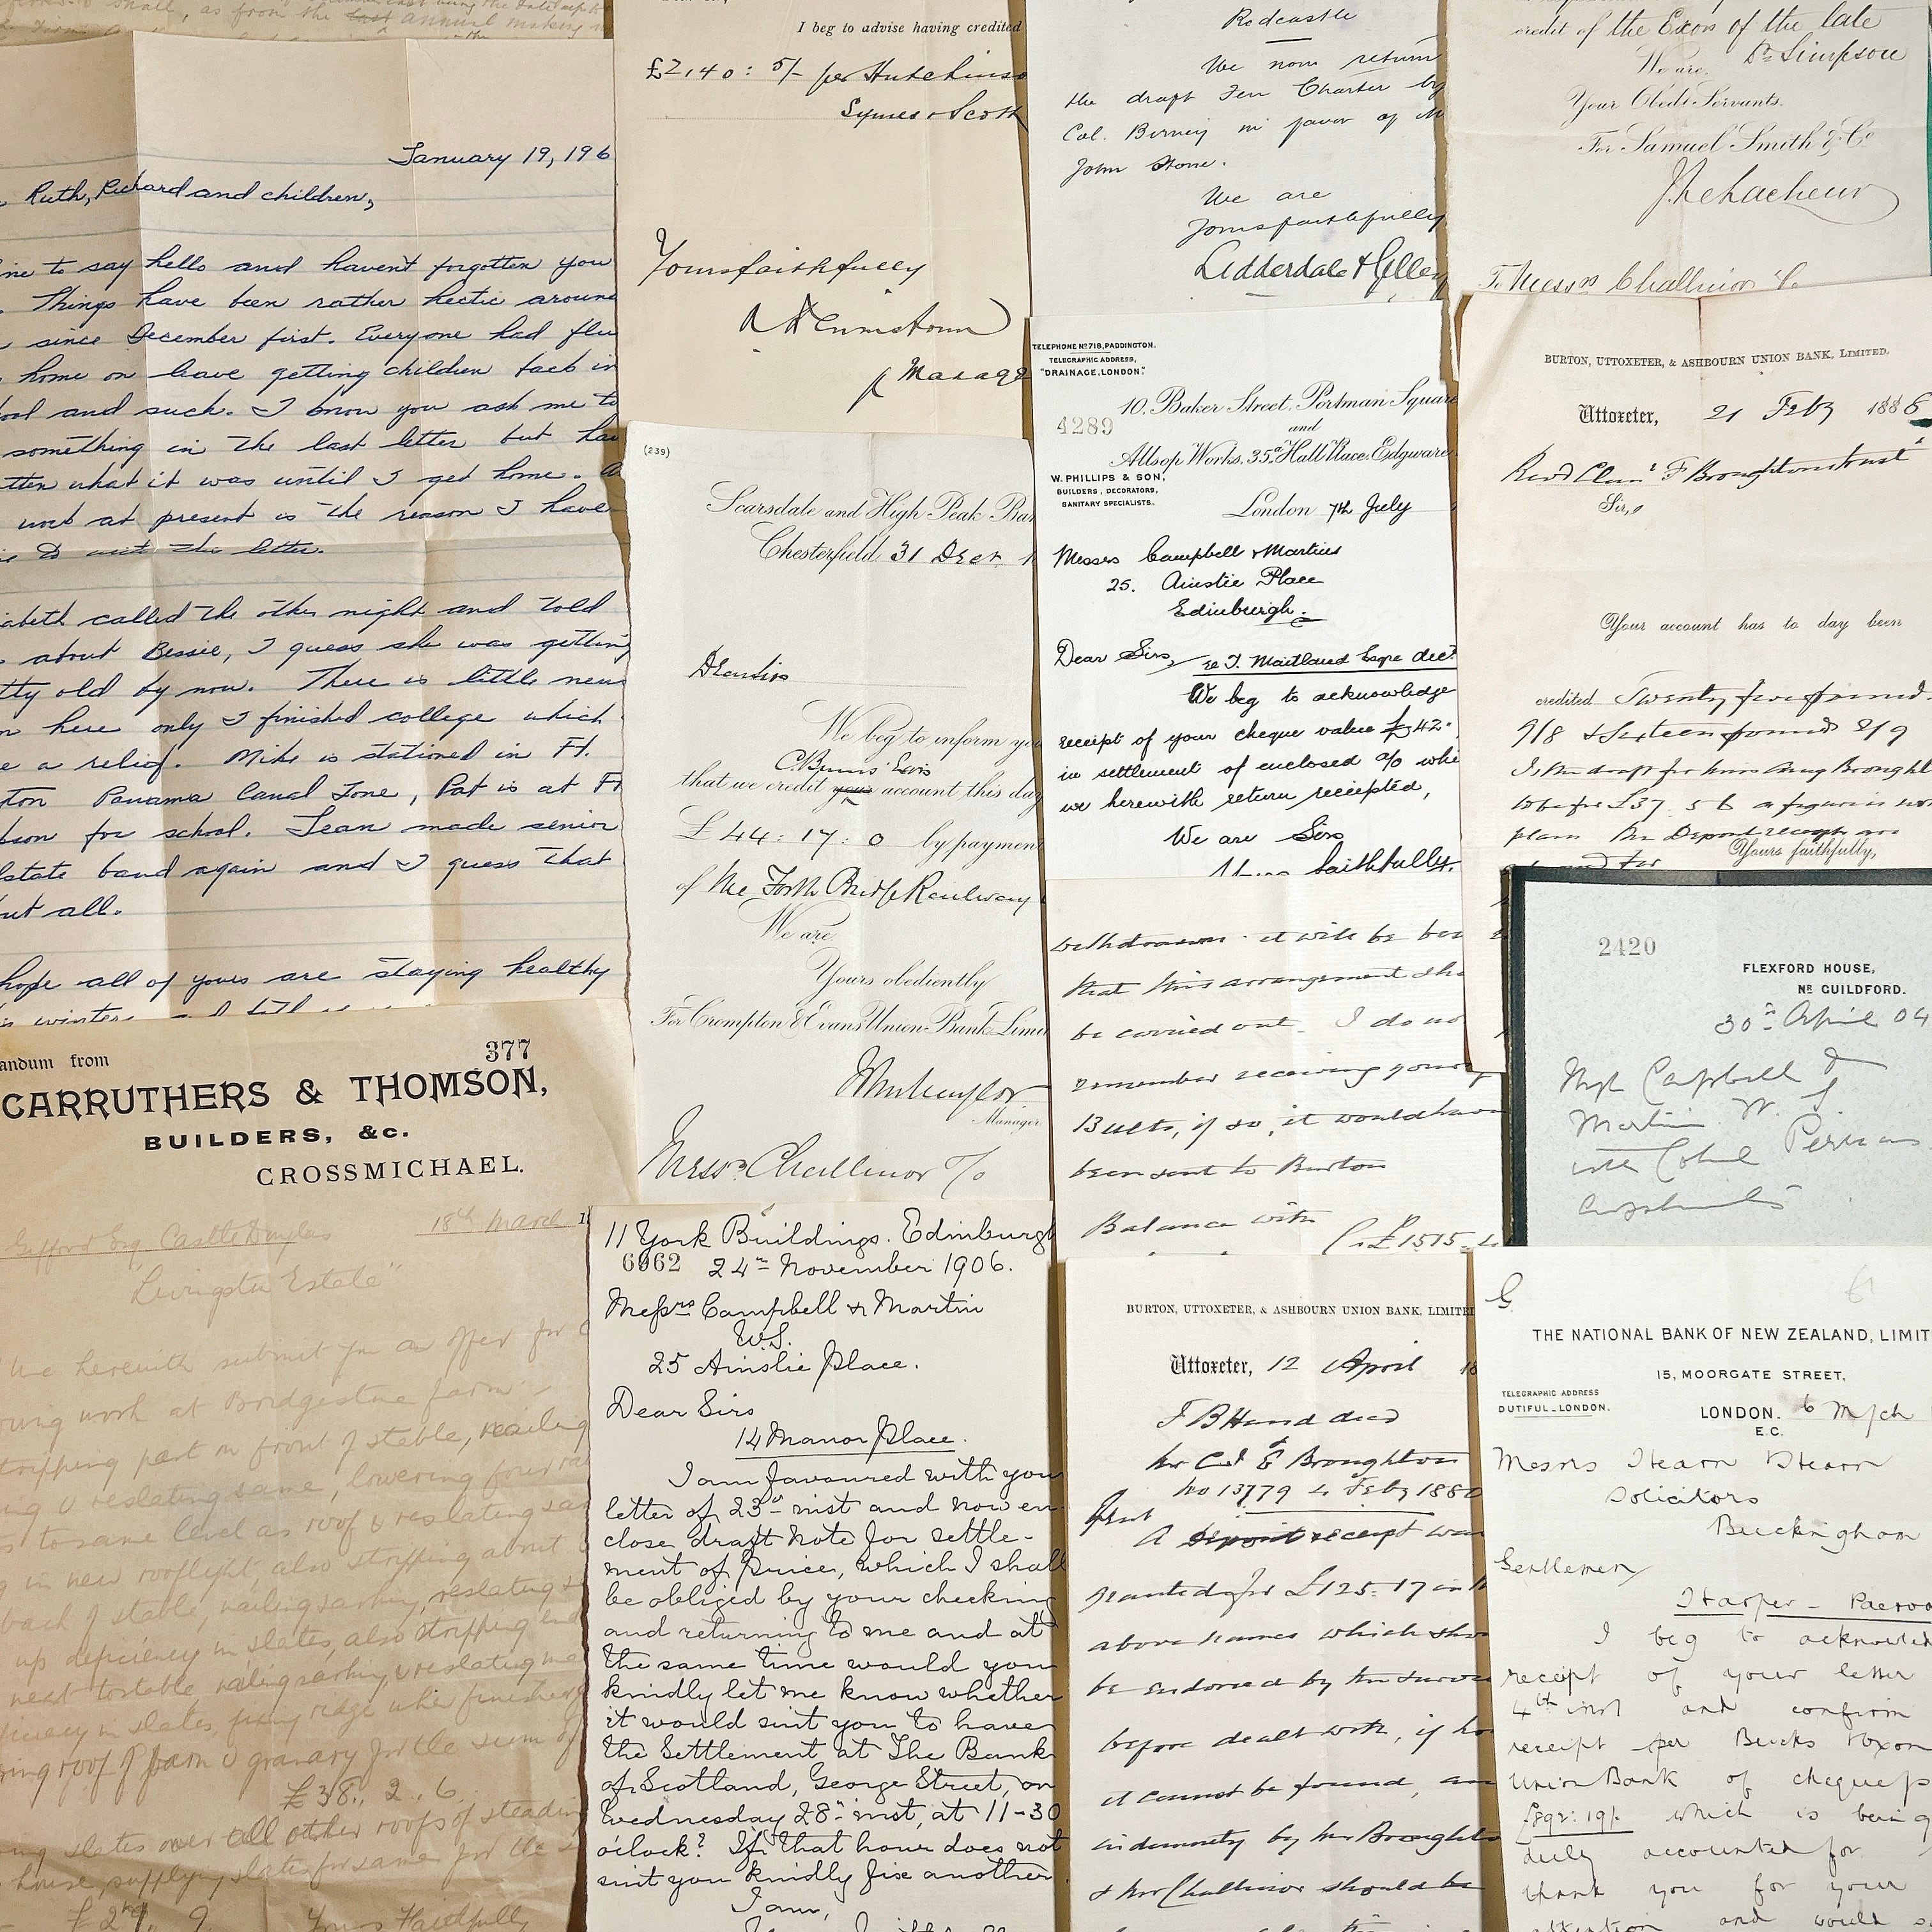 January 19, 196
Ruth, Richard and children,
to say hello and haven't forgotten you
Things have been rather hectic around
since December first. Everyone had flu
home on leave getting children back in
and such. I know you ask me to
something in the last letter but
what it was until I get home.
at present is the reason I have
the letter.
called the other night and told
about Bessie, I guess she was getting
old by now. There is little news
here only I finished college which
a relief. Mike is stationed in Ft.
Panama Canal Zone, Pat is at Ft
for school. Jean made senior
state band again and I guess that
all.
hope all of yours are staying healthy
andum from
377
CARRUTHERS & THOMSON,
BUILDERS, &c.
CROSSMICHAEL.
18th March
Gifford Esq Castle Douglas
Livingston Estate"
We herewith submit you an offer for
work at Bridgestone farm
stripping part in front of stable,
reslating same, lowering
to same level as roof & reslating
in new rooflight, also stripping about
back of stable, nailing sarking, reslating
up deficiency in slates, also stripping
next to stable nailing sarking, & reslating
in slates, ridge
roof of barn & granary for the sum of
£38.. 2.. 6.
slates over all other roofs of steading
house, supplying slates for same for the
Yours Faithfully
I beg to advise having credited
£2,140: 5/- per Hutchinso
Symes & Scott
Yours faithfully
p Manage
(239)
Scarsdale and High Peak Ban
Chesterfield 31 Decr.
Dear Sirs
We beg to inform you
C. Burns' Exors
that we credit your account this day
£44: 17: 0 by payment
of the Forth Bridge Railway
We are
Yours obediently
For Crompton & Evans Union Bank Limi
Manager
Messrs. Challinor
11 York Buildings. Edinburgh
6062 24th November 1906.
Messrs Campbell & Martin
W.S.
25 Ainslie Place.
Dear Sirs
14 Manor Place.
I am favoured with you
letter of 23d inst and now en
close draft Note for settle-
ment of price, which I shall
be obliged by your checking
and returning to me and at
the same time would you
kindly let me know whether
it would suit you to have
the Settlement at The Bank
of Scotland, George Street, on
Wednesday 28th inst, at 11-30
o'clock? If that hour does not
suit you kindly fix another
I am,
Redcastle
We now return
the draft Feu Charter by
Col. Birney in favor of M
John Stone.
We are
Yours faithfully
Lidderdale & Gille
TELEPHONE No 718, PADDINGTON.
TELEGRAPHIC ADDRESS,
"DRAINAGE, LONDON."
10, Baker Street, Portman Square
4289
and
Allsop Works, 35a Hall Place, Edgware
W. PHILLIPS & SON,
BUILDERS, DECORATORS,
SANITARY SPECIALISTS.
London 7th July
Messrs Campbell & Martin
25. Ainslie Place
Edinburgh.
Dear Sirs, re J. Maitland Esqre decd
We beg to acknowledge
receipt of your cheque value £42
in settlement of enclosed a/c whi
we herewith return receipted,
We are Sirs
Yours faithfully.
withdrawn. it will be
that this arrangement
be carried out. I do no
remember receiving your
Bults, if so, it would have
been sent to Burton
Balance with
£1515
BURTON, UTTOXETER, & ASHBOURN UNION BANK, LIMITED
Uttoxeter, 12 April 18
F B Hand decd
Mr C. J & F Broughton
No 13779 4 Feby 1880
A deposit receipt was
granted for £125. 17 in
above names which
be endorsed by the
before dealt with, if
it cannot be found, an
indemnity by Mr Broughto
& Mr Challinor should be
credit of the Exors of the late
We are. Dr Simpson
Your Obedt. Servants.
For Samuel Smith & Co
To Messrs Challinor
BURTON, UTTOXETER, & ASHBOURN UNION BANK, LIMITED.
Uttoxeter, 21 Feby 1886
Sir,
Your account has to day been
credited Twenty five pound
9/8 & Sixteen pound 8/9
to be for £37. 5 6 a figure is not
plain The Deposit receipt
Yours faithfully,
2420
FLEXFORD HOUSE,
NR GUILDFORD.
30th April 04
Campbell &
Martin W. S.
with
G
THE NATIONAL BANK OF NEW ZEALAND, LIMIT
15, MOORGATE STREET,
TELEGRAPHIC ADDRESS
DUTIFUL_LONDON.
LONDON. 6 Mch
E.C.
Messrs Hearn & Hearn
Solicitors
Buckingham
Gentlemen
Harper -
I beg to acknowled
receipt of your letter
4th inst and confirm
receipt per Bucks & Oxon
Union Bank of cheque
which is being
duly accounted for
thank you for your
attention and would